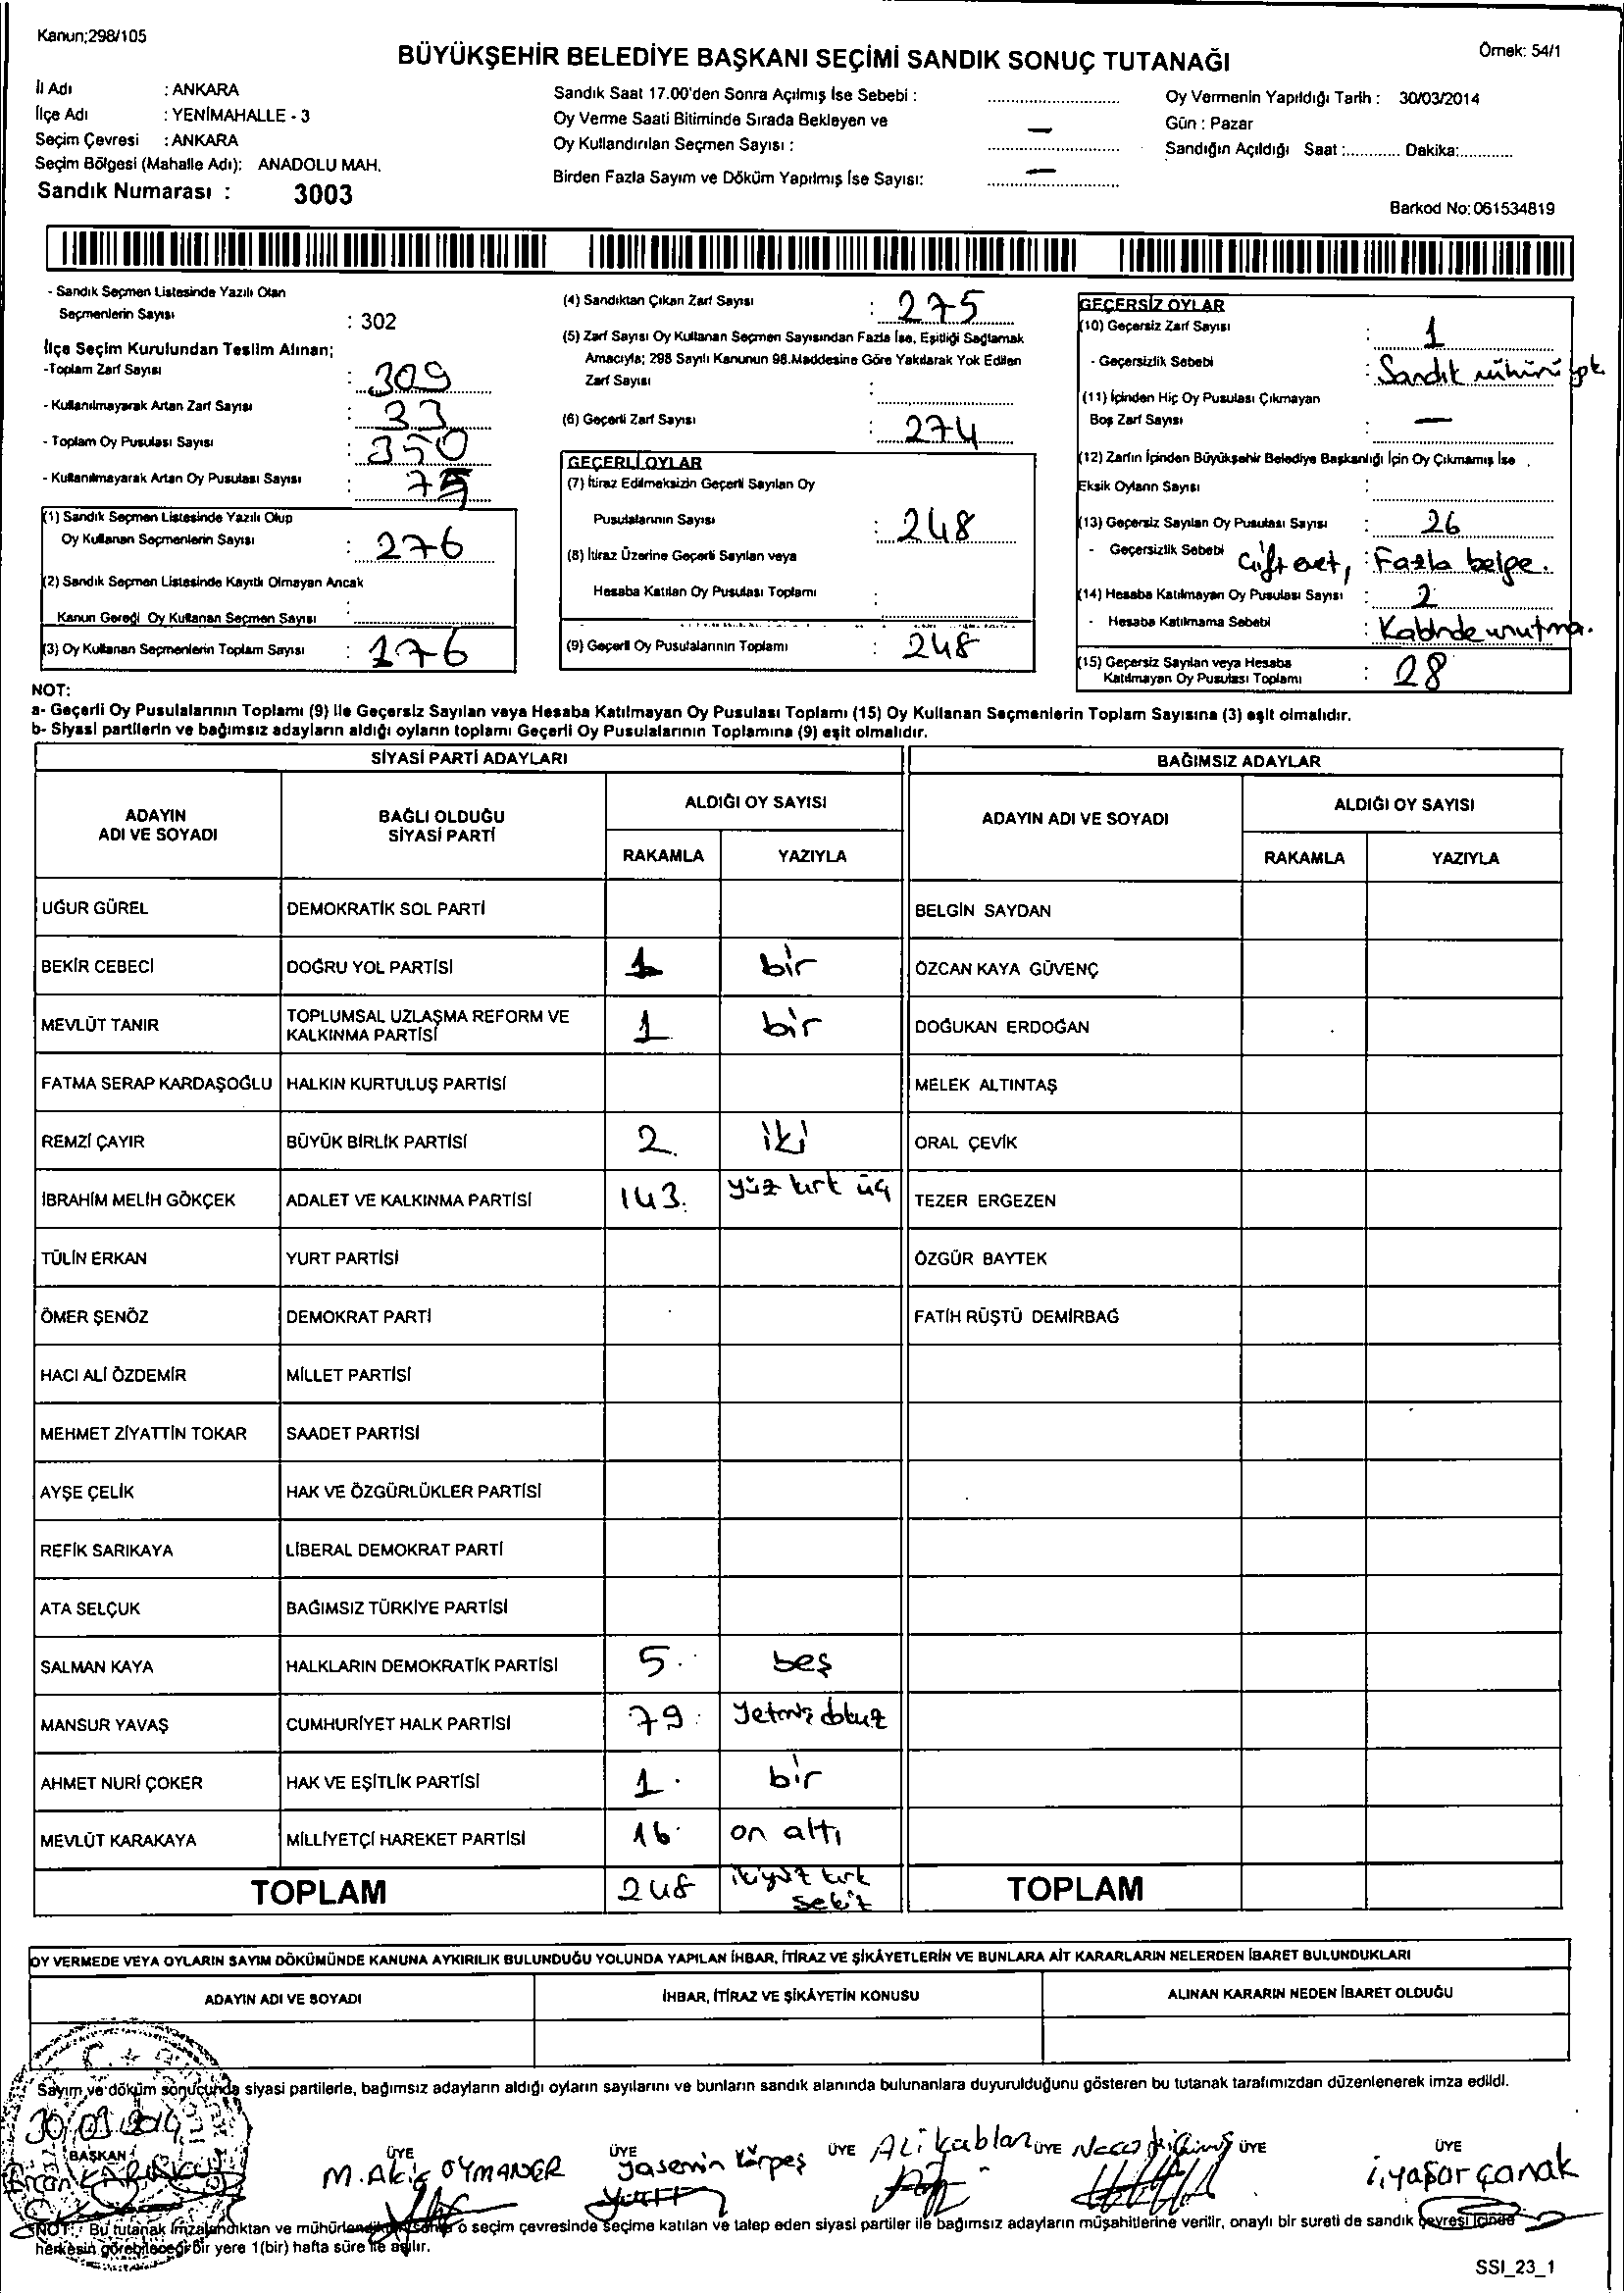 Kanun;298/105
Örnek: 54/1
BÜYÜKŞEHİR BELEDİYE BAŞKANI SEÇİMİ SANDIK SONUÇ TUTANAĞI
İl Adı : ANKARA
İlçe Adı : YENİMAHALLE - 3
Seçim Çevresi : ANKARA
Seçim Bölgesi (Mahalle Adı): ANADOLU MAH.
Sandık Numarası : 3003
Sandık Saat 17.00'den Sonra Açılmış İse Sebebi :
Oy Verme Saati Bitiminde Sırada Bekleyen ve
Oy Kullandırılan Seçmen Sayısı : —
Birden Fazla Sayım ve Döküm Yapılmış İse Sayısı: —
Oy Vermenin Yapıldığı Tarih : 30/03/2014
Gün : Pazar
Sandığın Açıldığı Saat :............ Dakika:............
Barkod No: 061534819
- Sandık Seçmen Listesinde Yazılı Olan
Seçmenlerin Sayısı : 302
İlçe Seçim Kurulundan Teslim Alınan;
-Toplam Zarf Sayısı : 309
- Kullanılmayarak Artan Zarf Sayısı : 33
- Toplam Oy Pusulası Sayısı : 350
- Kullanılmayarak Artan Oy Pusulası Sayısı : 75
(1) Sandık Seçmen Listesinde Yazılı Olup
Oy Kullanan Seçmenlerin Sayısı : 276
(2) Sandık Seçmen Listesinde Kayıtlı Olmayan Ancak
Kanun Gereği Oy Kullanan Seçmen Sayısı :
(3) Oy Kullanan Seçmenlerin Toplam Sayısı : 276
(4) Sandıktan Çıkan Zarf Sayısı : 275
(5) Zarf Sayısı Oy Kullanan Seçmen Sayısından Fazla İse, Eşitliği Sağlamak
Amacıyla; 298 Sayılı Kanunun 98.Maddesine Göre Yakılarak Yok Edilen
Zarf Sayısı :
(6) Geçerli Zarf Sayısı : 274
GEÇERLİ OYLAR
(7) İtiraz Edilmeksizin Geçerli Sayılan Oy
Pusulalarının Sayısı : 248
(8) İtiraz Üzerine Geçerli Sayılan veya
Hesaba Katılan Oy Pusulası Toplamı :
(9) Geçerli Oy Pusulalarının Toplamı : 248
GEÇERSİZ OYLAR
(10) Geçersiz Zarf Sayısı : 1
- Geçersizlik Sebebi : Sandık mührü yok
(11) İçinden Hiç Oy Pusulası Çıkmayan
Boş Zarf Sayısı : —
(12) Zarfın İçinden Büyükşehir Belediye Başkanlığı İçin Oy Çıkmamış İse
Eksik Oyların Sayısı :
(13) Geçersiz Sayılan Oy Pusulası Sayısı : 26
- Geçersizlik Sebebi : Çift evet, Fazla belge.
(14) Hesaba Katılmayan Oy Pusulası Sayısı : 2
- Hesaba Katılmama Sebebi : Kabinde unutma.
(15) Geçersiz Sayılan veya Hesaba
Katılmayan Oy Pusulası Toplamı : 28
NOT:
a- Geçerli Oy Pusulalarının Toplamı (9) ile Geçersiz Sayılan veya Hesaba Katılmayan Oy Pusulası Toplamı (15) Oy Kullanan Seçmenlerin Toplam Sayısına (3) eşit olmalıdır.
b- Siyasi partilerin ve bağımsız adayların aldığı oyların toplamı Geçerli Oy Pusulalarının Toplamına (9) eşit olmalıdır.
SİYASİ PARTİ ADAYLARI
BAĞIMSIZ ADAYLAR
ADAYIN ADI VE SOYADI
BAĞLI OLDUĞU SİYASİ PARTİ
ALDIĞI OY SAYISI
RAKAMLA YAZIYLA
ADAYIN ADI VE SOYADI
ALDIĞI OY SAYISI
RAKAMLA YAZIYLA
UĞUR GÜREL DEMOKRATİK SOL PARTİ BELGİN SAYDAN
BEKİR CEBECİ DOĞRU YOL PARTİSİ 1 bir ÖZCAN KAYA GÜVENÇ
MEVLÜT TANIR TOPLUMSAL UZLAŞMA REFORM VE KALKINMA PARTİSİ 1 bir DOĞUKAN ERDOĞAN
FATMA SERAP KARDAŞOĞLU HALKIN KURTULUŞ PARTİSİ MELEK ALTINTAŞ
REMZİ ÇAYIR BÜYÜK BİRLİK PARTİSİ 2. iki ORAL ÇEVİK
İBRAHİM MELİH GÖKÇEK ADALET VE KALKINMA PARTİSİ 143. yüz kırk üç TEZER ERGEZEN
TÜLİN ERKAN YURT PARTİSİ ÖZGÜR BAYTEK
ÖMER ŞENÖZ DEMOKRAT PARTİ FATİH RÜŞTÜ DEMİRBAĞ
HACI ALİ ÖZDEMİR MİLLET PARTİSİ
MEHMET ZİYATTİN TOKAR SAADET PARTİSİ
AYŞE ÇELİK HAK VE ÖZGÜRLÜKLER PARTİSİ
REFİK SARIKAYA LİBERAL DEMOKRAT PARTİ
ATA SELÇUK BAĞIMSIZ TÜRKİYE PARTİSİ
SALMAN KAYA HALKLARIN DEMOKRATİK PARTİSİ 5. beş
MANSUR YAVAŞ CUMHURİYET HALK PARTİSİ 79. Yetmiş dokuz
AHMET NURİ ÇOKER HAK VE EŞİTLİK PARTİSİ 1. bir
MEVLÜT KARAKAYA MİLLİYETÇİ HAREKET PARTİSİ 16. on altı
TOPLAM 248 ikiyüz kırk sekiz TOPLAM
OY VERMEDE VEYA OYLARIN SAYIM DÖKÜMÜNDE KANUNA AYKIRILIK BULUNDUĞU YOLUNDA YAPILAN İHBAR, İTİRAZ VE ŞİKÂYETLERİN VE BUNLARA AİT KARARLARIN NELERDEN İBARET BULUNDUKLARI
ADAYIN ADI VE SOYADI İHBAR, İTİRAZ VE ŞİKÂYETİN KONUSU ALINAN KARARIN NEDEN İBARET OLDUĞU
Sayım ve döküm sonucunda siyasi partilerle, bağımsız adayların aldığı oyların sayılarını ve bunların sandık alanında bulunanlara duyurulduğunu gösteren bu tutanak tarafımızdan düzenlenerek imza edildi.
30.03.2014
BAŞKAN ÜYE ÜYE ÜYE ÜYE ÜYE ÜYE
M. Akif OYMANER Yasemin Körpeş Ali Kablan i. yaşar çanak
NOT : Bu tutanak imzalandıktan ve mühürlendikten sonra o seçim çevresinde seçime katılan ve talep eden siyasi partiler ile bağımsız adayların müşahitlerine verilir, onaylı bir sureti de sandık çevresi içinde
herkesin görebileceği bir yere 1(bir) hafta süre ile asılır.
SSI_23_1